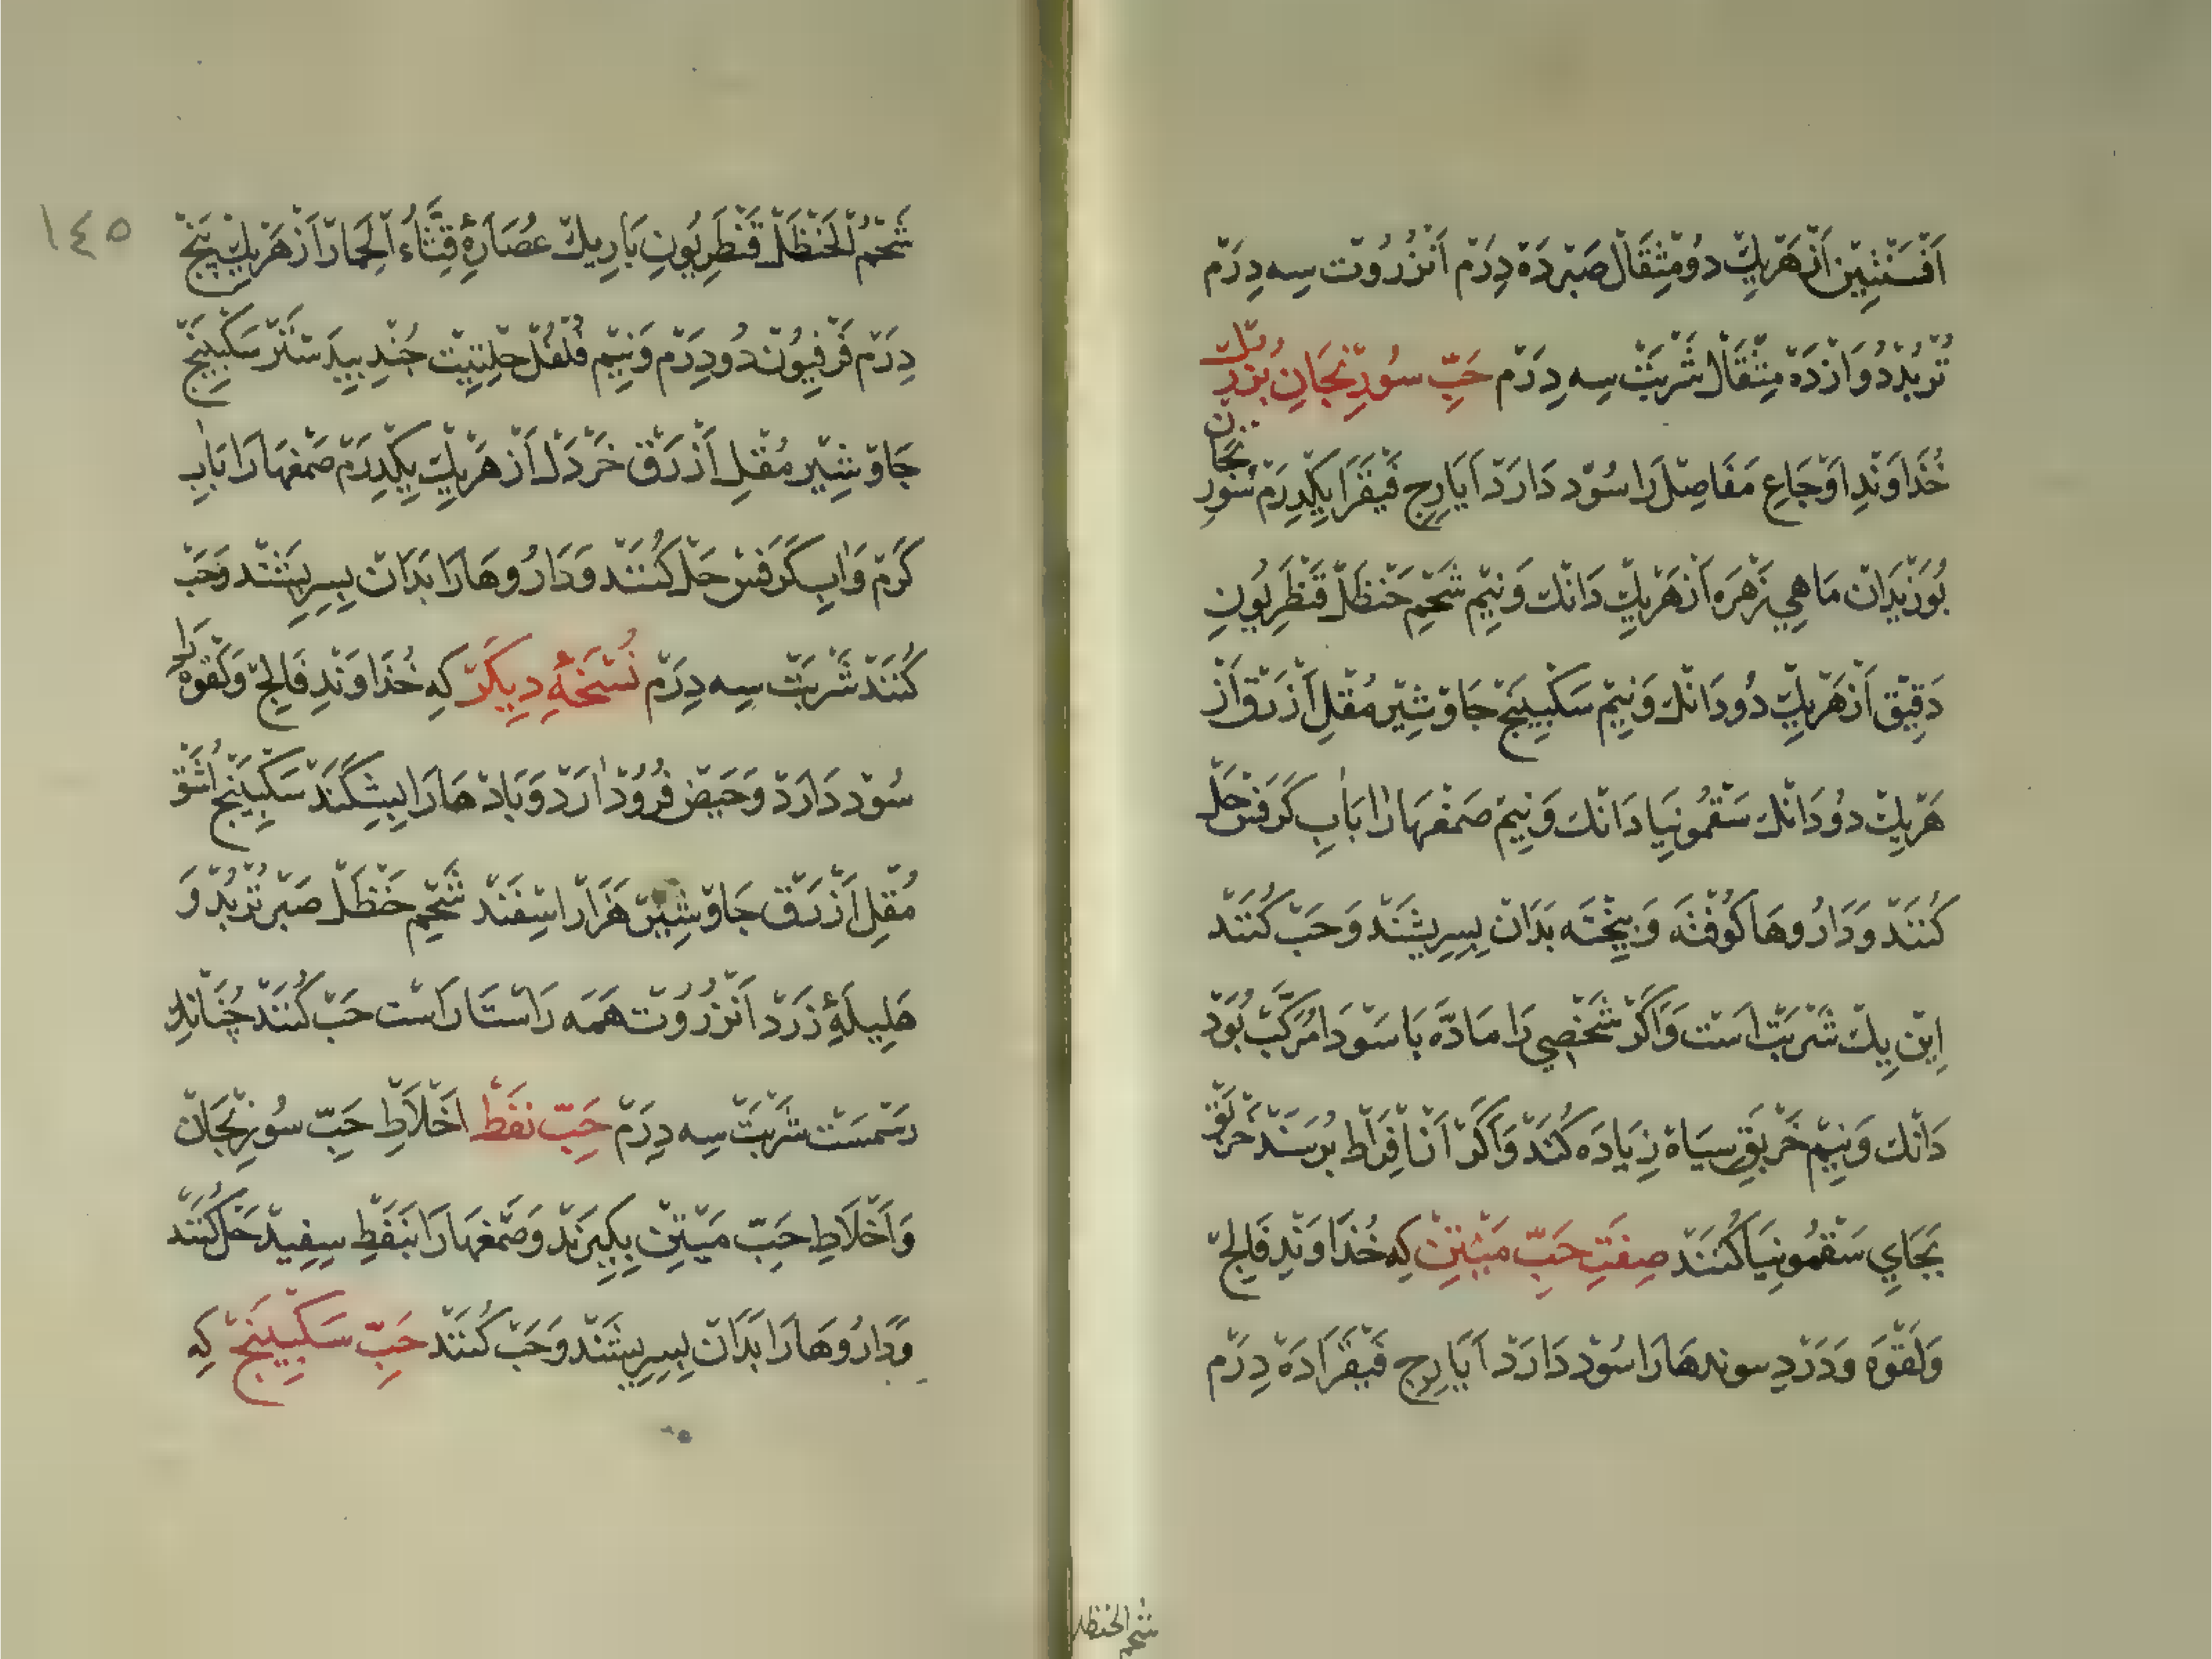 اَفْسَنْتِيْن اَزْ هَرْ يِكْ دُو مِثْقَالْ صَبْر دَهْ دِرَمْ اَنْزَرُوْت سِه دِرَمْ
تُرْبُدْ دُوَازْدَهْ مِثْقَالْ شَرْبَتْ سِه دِرَمْ حَبِّ سُوْرِنْجَانِ بُزُرْك
خُذَاوَنْدِ اَوْجَاعِ مَفَاصِلْ رَا سُوْد دَارَدْ اَيَارِجِ فَيْقَرَا يِكْدِرَمْ سُوْرِنْجَان
بُوْزِيْدَانْ مَاهِي زَهْرَه اَزْ هَرْ يِكْ دَانْك وَنِيْمْ شَحْمِ حَنْظَلْ قَنْطَرِيُوْنِ
دَقِيْق اَزْ هَرْ يِكْ دُو دَانْك وَنِيْمْ سَكْبِيْنَجْ جَاوْشِيْر مُقْلِ اَزْرَقْ اَزْ
هَرْ يِكْ دُو دَانْك سَقْمُونِيَا دَانْك وَنِيْمْ صَمْغهَا رَا بَابِ كَرَفْسْ حَلْ
كُنَنَدْ وَدَارُوهَا كُوفْتَه وَبِيْخْتَه بَدَانْ بِسِرِيشَنْد وَحَبْ كُنَنَدْ
اِيْن يِكْ شَرْبَتْ اسَتْ وَاَكَرْ شَخْصِي رَا مَادَّه بَا سَوْدَا مُرَكَّبْ بُوَدْ
دَانْك وَنِيْمْ خَرْبَقِ سِيَاهْ زِيَادَه كُنَنْدْ وَاَكَرْ اَزْ اِفْرَاط بِرْسَنْدْ خَرْبَقْ
بَجَايِ سَقْمُونِيَا كُنَنَدْ صِفَتِ حَبِّ مَيْتِنْ كِه خُذَاوَنْدِ فَالِجْ
وَلَقْوَه وَدَرْدِ سوندهَا رَا سُوْد دَارَدْ اَيَارِجِ فَيْقَرَا دَهْ دِرَمْ
شحم الحنظل
١٤٥
شَحْمُ الْحَنْظَلْ قَنْطَرِيُوْنِ بَارِيكْ عُصَارَهٔ قِثَّاءُ الْحِمَارْ اَزْ هَرْ يِكْ پَنْجْ
دِرَمْ فَرْفِيُوْنْ دُو دِرَمْ وَنِيْمْ فُلْفُلْ حِلْتِيْت جُنْدِ بِيدَسْتَرْ سَكْبِيْنَجْ
جَاوْشِيْر مُقْلِ اَزْرَقْ خَرْدَلْ اَزْ هَرْ يِكْ يِكْدِرَمْ صَمْغهَا رَا بَابِ
كَرْمْ وَابِ كَرَفْسْ حَلْ كُنَنَدْ وَدَارُوهَا رَا بَدَانْ بِسِرِيشَنْد وَحَبْ
كُنَنَدْ شَرْبَتْ سِه دِرَمْ نُسْخَهٔ دِيكَرْ كِه خُذَاوَنْدِ فَالِجْ وَلَقْوَه رَا
سُوْد دَارَدْ وَحَيْض فُرُوْدْ ارَدْ وَبَادْهَا رَا بِشِكَنَدْ سَكْبِيْنَجْ اُشَّقْ
مُقْلِ اَزْرَقْ جَاوْشِيْرْ هَزَارْ اسْفَنْد شَحْمِ حَنْظَلْ صَبْر تُرْبُدْ وَ
هَلِيلَهٔ زَرْدْ اَنْزَرُوْت هَمَه رَاسْتَارَاسْت حَبْ كُنَنَدْ چُنَانكِه
رسْمَسْتْ شَرْبَتْ سِه دِرَمْ حَبِّ نَفْطْ اَخْلَاطِ حَبِّ سُوْرِنْجَانْ
وَاَخْلَاطِ حَبِّ مَيْتِنْ بِكِيرَنْد وَصَمْغهَا رَا بَنَفْطِ سِفِيدْ حَلْ كُنَنَدْ
وَدَارُوهَا رَا بَدَانْ بِسِرِيشَنْد وَحَبْ كُنَنَدْ حَبِّ سَكْبِيْنَجْ كِه